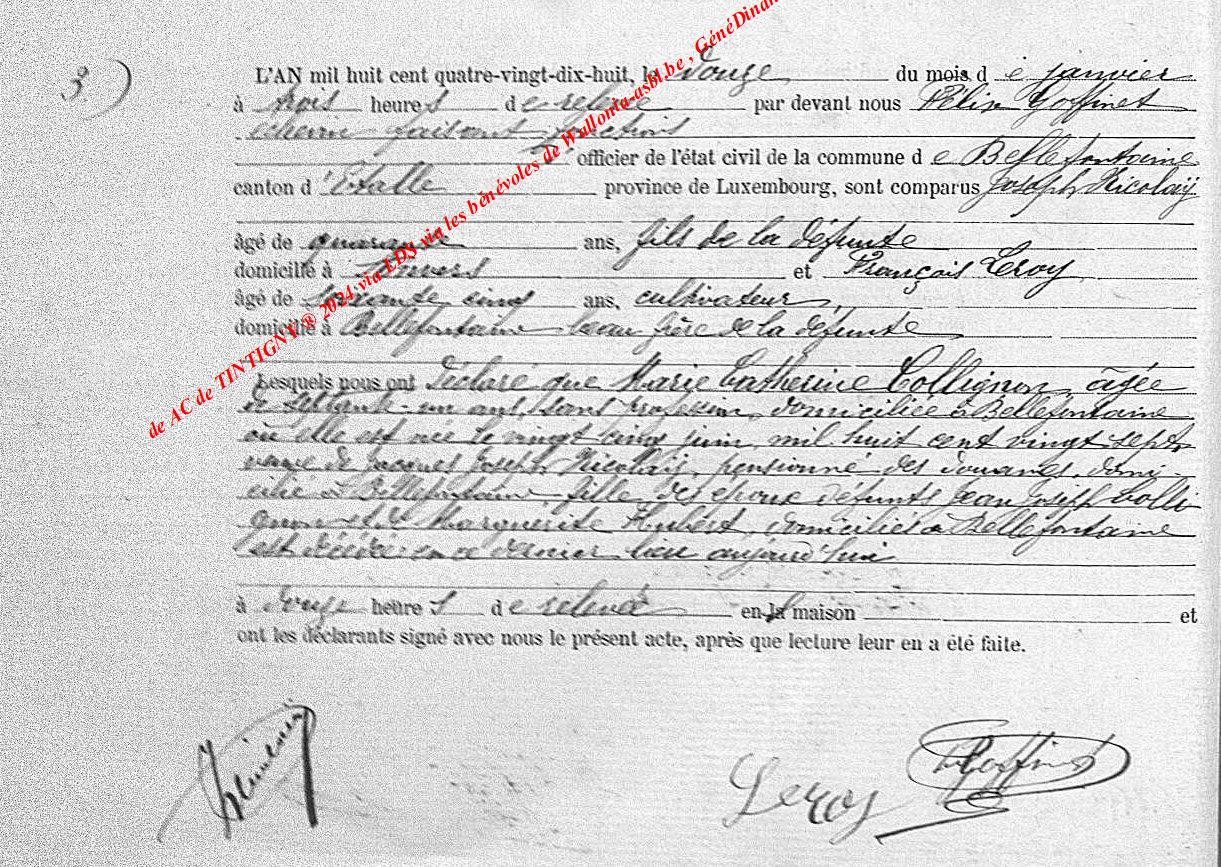 3)
L'AN mil huit cent quatre-vingt-dix-huit, le Douze du mois de janvier
à trois heures de relevée par devant nous Félix Goffinet
échevin faisant fonctions
officier de l'état civil de la commune de Bellefontaine
canton d'Etalle province de Luxembourg, sont comparus Joseph Nicolaÿ
âgé de quarante ans, fils de la défunte
domicilié à Anvers et François Leroy
âgé de soixante cinq ans, cultivateur,
domicilié à Bellefontaine beau frère de la défunte
Lesquels nous ont Déclaré que Marie Catherine Collignon, âgée
de septante-un ans, sans profession, domiciliée à Bellefontaine
où elle est née le vingt cinq juin mil huit cent vingt sept,
veuve de Jacques Joseph Nicolaÿ, pensionné des douanes, domi-
cilié à Bellefontaine fille des époux défunts Jean Joseph Colli
gnon et Marguérite Hubert, domiciliés à Bellefontaine
est décédée en ce dernier lieu aujourd'hui
à douze heures de relevée en la maison et
ont les déclarants signé avec nous le présent acte, après que lecture leur en a été faite.
Leroy
Goffinet
de AC de TINTIGNY ® 2024 via LDS via les bénévoles de Wallonia-asbl.be, GénéDinan